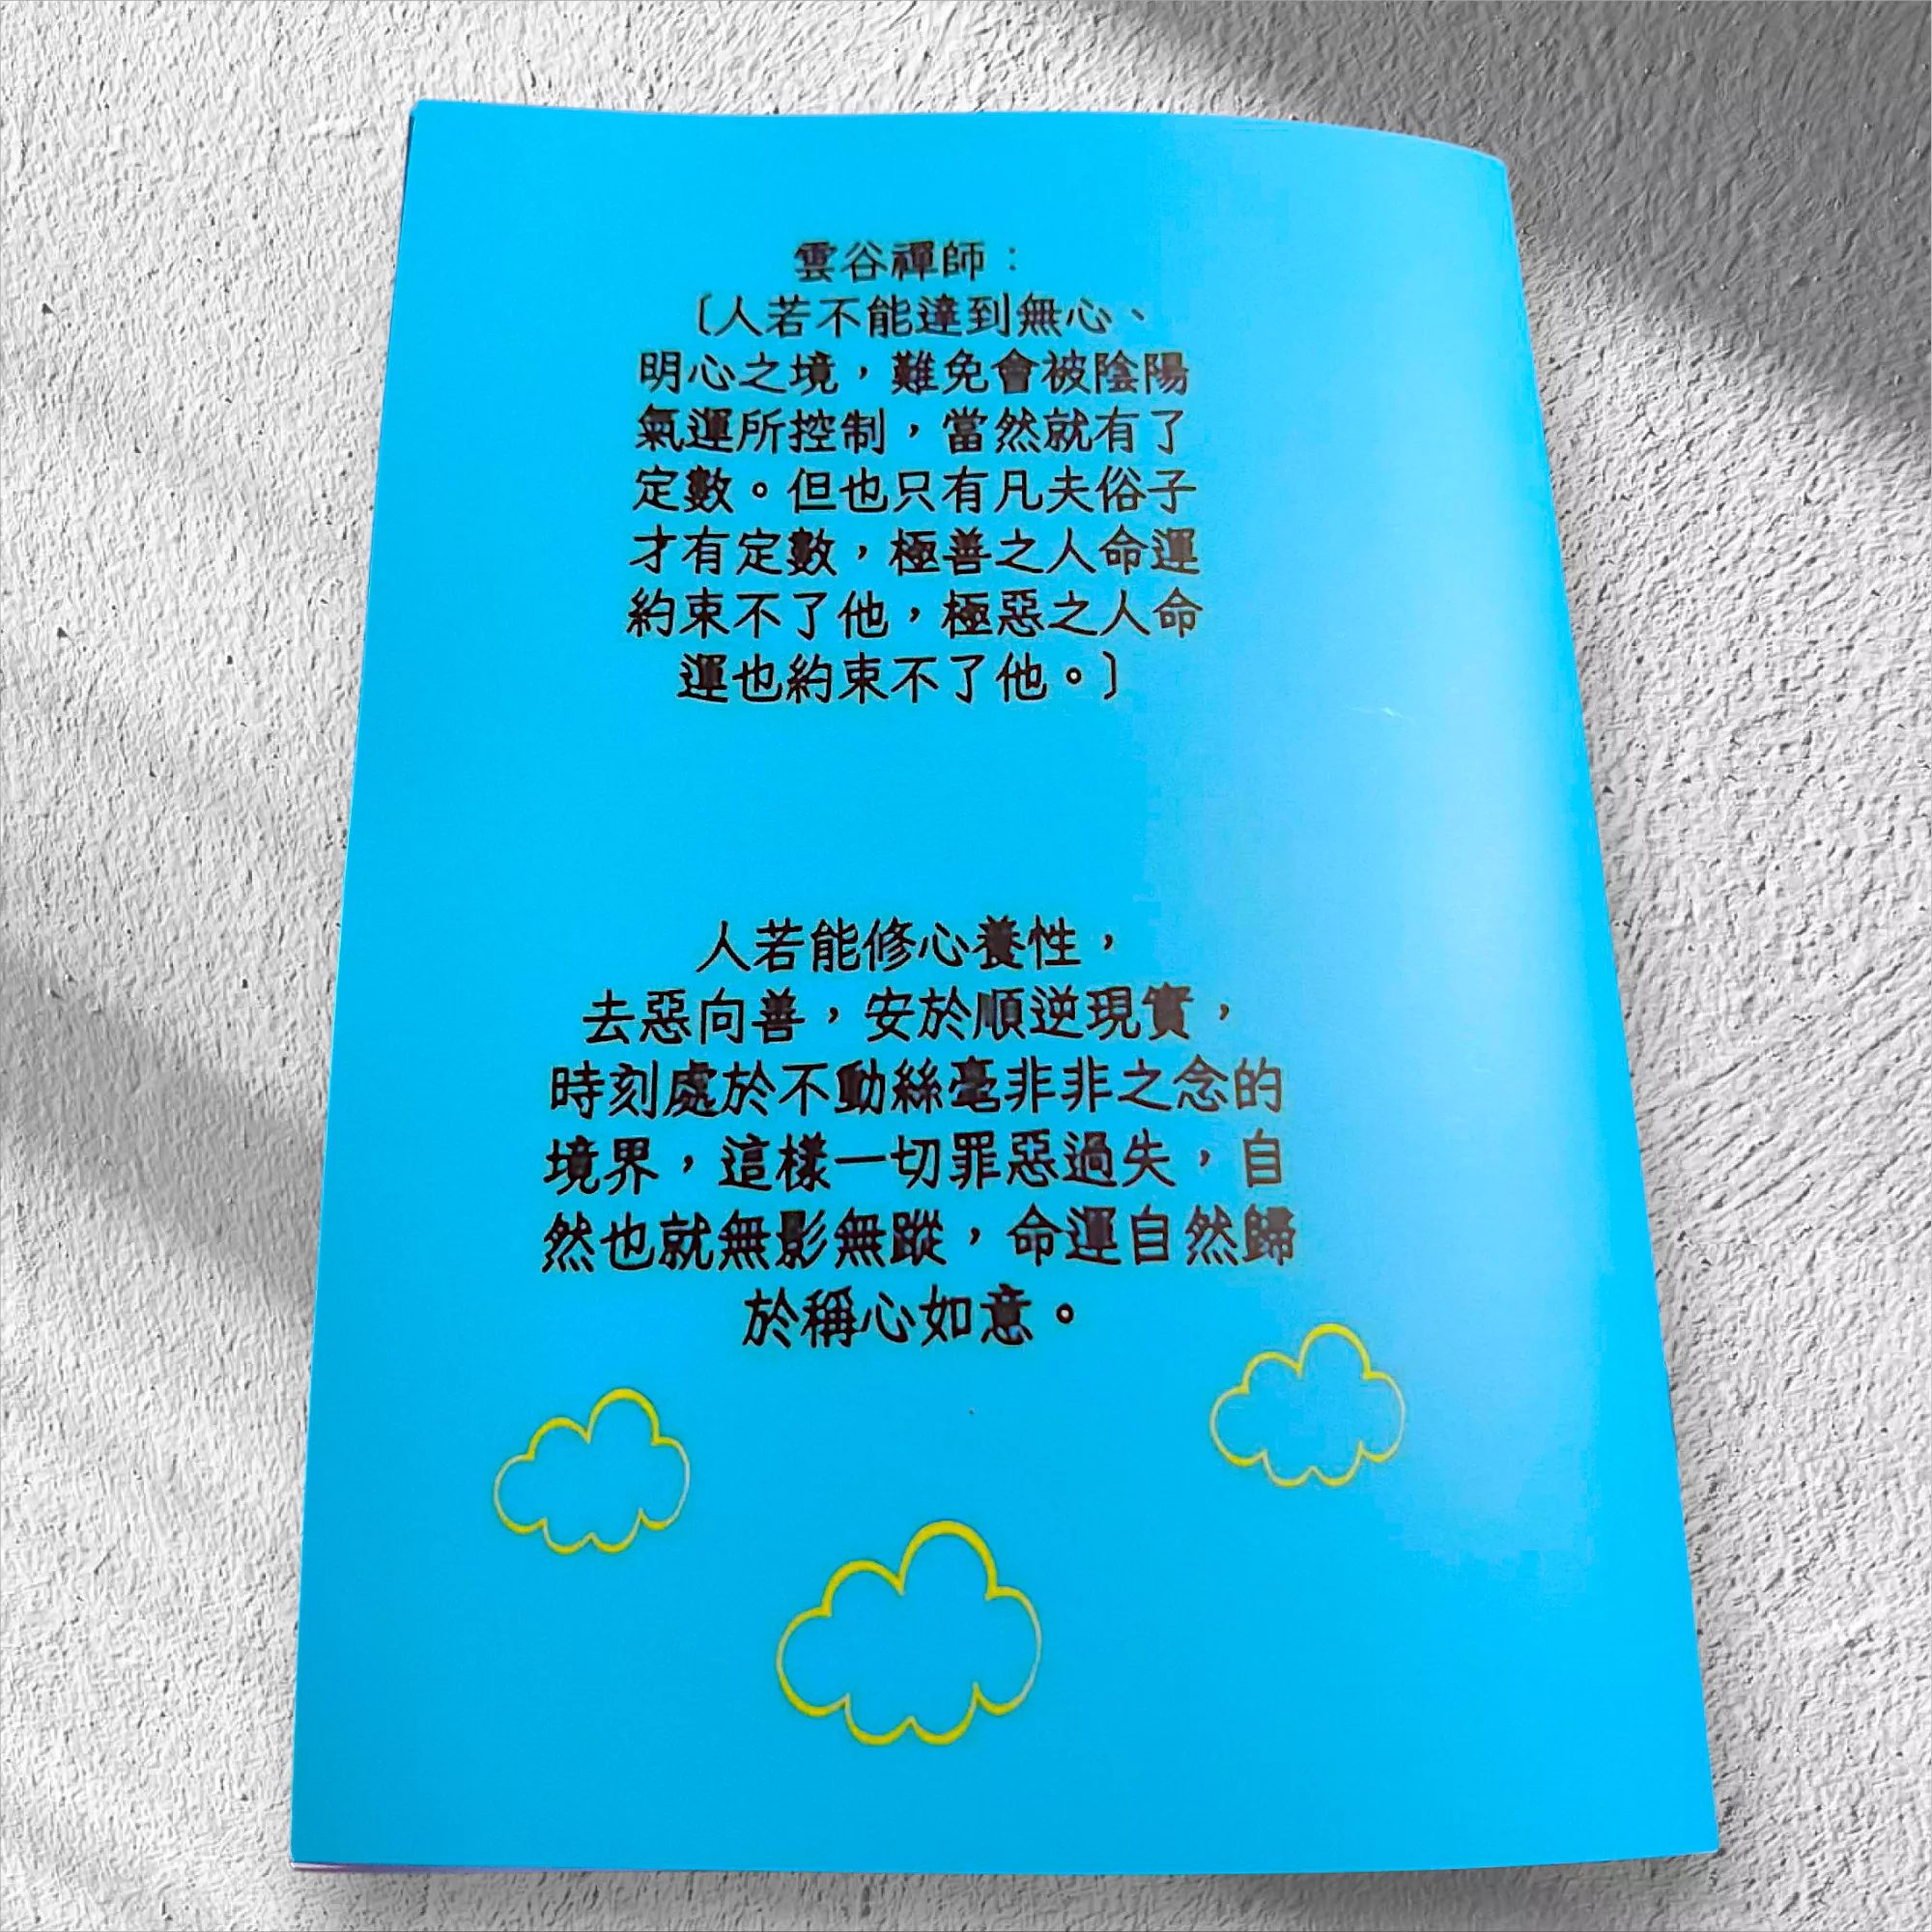 雲谷禪師：
〔人若不能達到無心、
明心之境，難免會被陰陽
氣運所控制，當然就有了
定數。但也只有凡夫俗子
才有定數，極善之人命運
約束不了他，極惡之人命
運也約束不了他。〕
人若能修心養性，
去惡向善，安於順逆現實，
時刻處於不動絲毫非非之念的
境界，這樣一切罪惡過失，自
然也就無影無蹤，命運自然歸
於稱心如意。